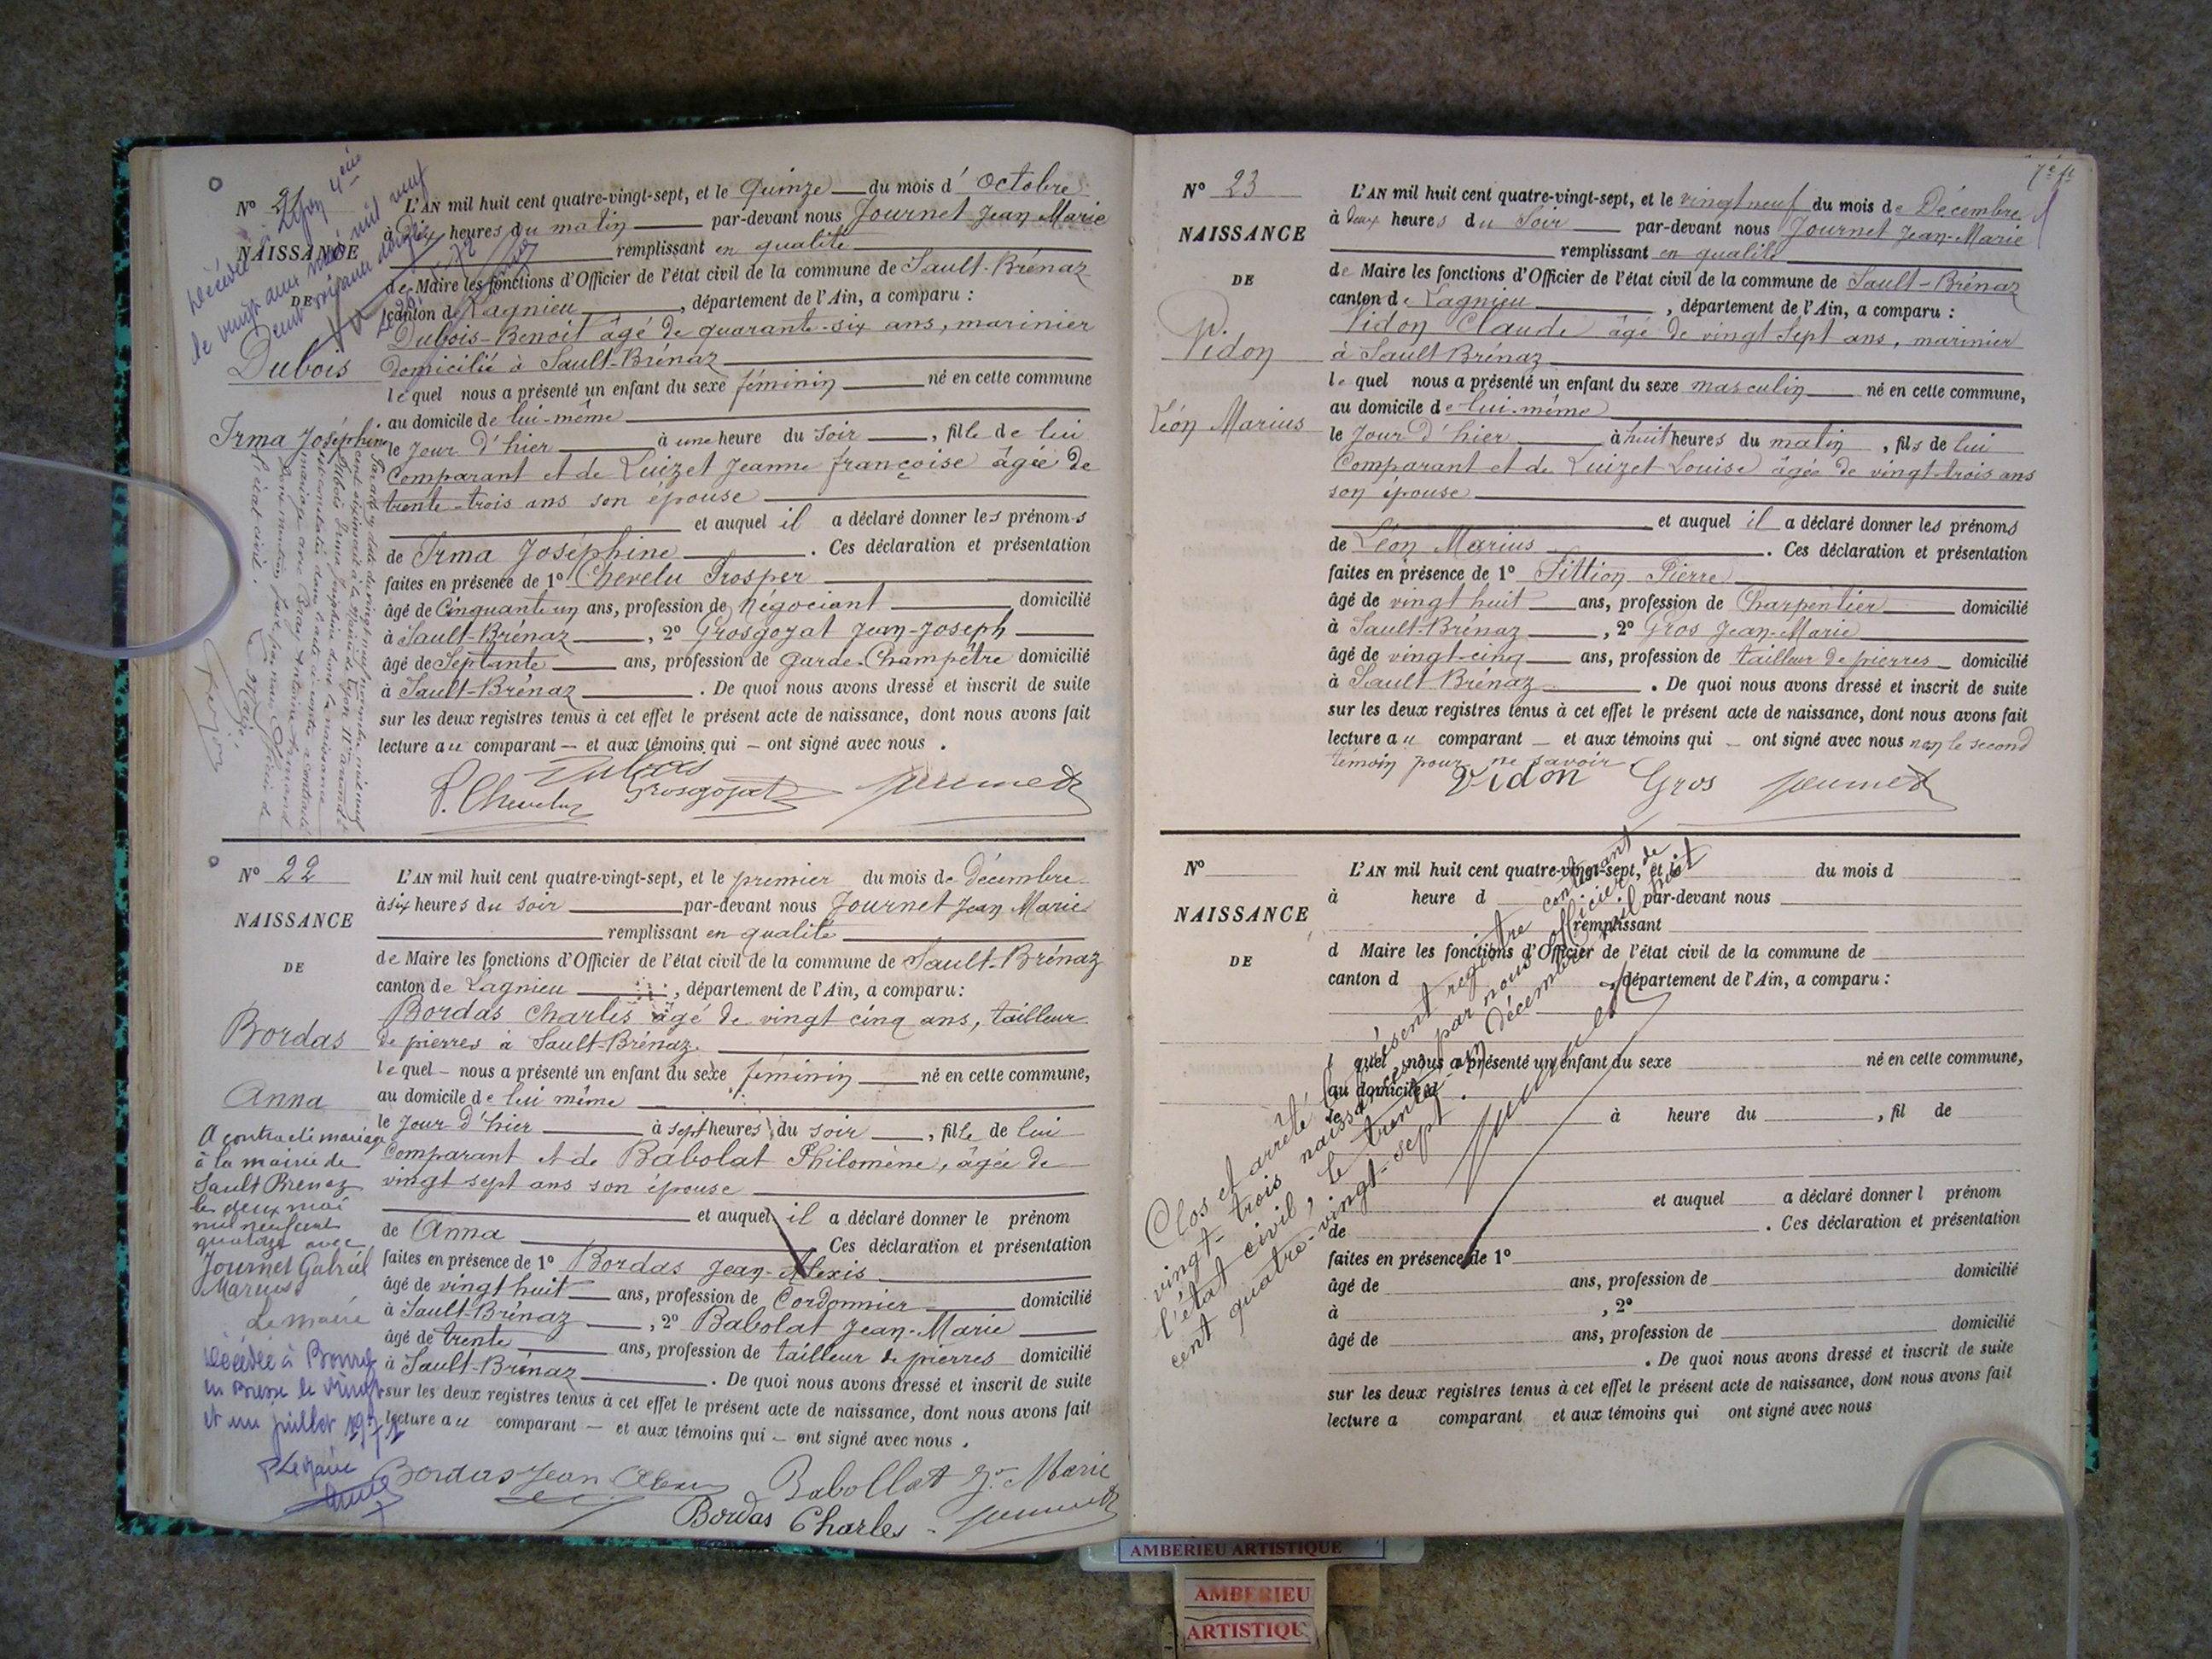 N° 21
NAISSANCE
DE
Dubois
Irma Joséphine
L'AN mil huit cent quatre-vingt-sept, et le Quinze du mois d'Octobre
à Dix heures du matin par-devant nous Journet Jean Marie
remplissant en qualité
de Maire les fonctions d'Officier de l'état civil de la commune de Sault-Brénaz
canton de Lagnieu, département de l'Ain, a comparu :
Dubois-Benoit âgé de quarante-six ans, marinier
domicilié à Sault-Brénaz
lequel nous a présenté un enfant du sexe féminin né en cette commune
au domicile de lui-même
le jour d'hier à une heure du soir, fille de lui
Comparant et de Luizet Jeanne françoise âgée de
trente-trois ans son épouse
et auquel il a déclaré donner les prénoms
de Irma Joséphine. Ces déclaration et présentation
faites en présence de 1° Chevelu Prosper
âgé de Cinquante un ans, profession de Négociant domicilié
à Sault-Brénaz, 2° Grosgojat Jean-Joseph
âgé de Septante ans, profession de Garde-Champêtre domicilié
à Sault-Brénaz. De quoi nous avons dressé et inscrit de suite
sur les deux registres tenus à cet effet le présent acte de naissance, dont nous avons fait
lecture au comparant — et aux témoins qui — ont signé avec nous.
Dubois
P. Chevelu Grosgojat Journet
N° 22
NAISSANCE
DE
Bordas
Anna
A contracté mariage
à la mairie de
Sault Brenaz
le deux mai
mil neuf cent
quatorze avec
Journet Gabriel
Marius
Le maire
Décédée à Bourg
en Bresse le vingt
et un juillet 1971
P Le Maire
L'AN mil huit cent quatre-vingt-sept, et le premier du mois de décembre
à six heures du soir par-devant nous Journet Jean Marie
remplissant en qualité
de Maire les fonctions d'Officier de l'état civil de la commune de Sault-Brénaz
canton de Lagnieu, département de l'Ain, a comparu :
Bordas Charles âgé de vingt cinq ans, tailleur
de pierres à Sault-Brénaz.
lequel — nous a présenté un enfant du sexe féminin né en cette commune,
au domicile de lui même
le jour d'hier à sept heures du soir, fille de lui
Comparant et de Babolat Philomène, âgée de
vingt sept ans son épouse
et auquel il a déclaré donner le prénom
de Anna Ces déclaration et présentation
faites en présence de 1° Bordas Jean-Alexis
âgé de vingt huit ans, profession de Cordonnier domicilié
à Sault-Brénaz, 2° Babolat Jean-Marie
âgé de trente ans, profession de tailleur de pierres domicilié
à Sault-Brénaz. De quoi nous avons dressé et inscrit de suite
sur les deux registres tenus à cet effet le présent acte de naissance, dont nous avons fait
lecture au comparant — et aux témoins qui — ont signé avec nous.
Bordas Jean Alexis Babollat Jn Marie
Bordas Charles Journet
N° 23
NAISSANCE
DE
Vidon
Léon Marius
L'AN mil huit cent quatre-vingt-sept, et le vingt neuf du mois de Décembre
à deux heures du Soir par-devant nous Journet Jean-Marie
remplissant en qualité
de Maire les fonctions d'Officier de l'état civil de la commune de Sault-Brénaz
canton de Lagnieu, département de l'Ain, a comparu :
Vidon Claude âgé de vingt Sept ans, marinier
à Sault Brénaz
lequel nous a présenté un enfant du sexe masculin né en cette commune,
au domicile de lui-même
le Jour d'hier à huit heures du matin, fils de lui
Comparant et de Luizet Louise âgée de vingt-trois ans
son épouse
et auquel il a déclaré donner les prénoms
de Léon Marius. Ces déclaration et présentation
faites en présence de 1° Sittion Pierre
âgé de vingt huit ans, profession de Charpentier domicilié
à Sault-Brénaz, 2° Gros Jean-Marie
âgé de vingt-cinq ans, profession de tailleur de pierres domicilié
à Sault Brénaz. De quoi nous avons dressé et inscrit de suite
sur les deux registres tenus à cet effet le présent acte de naissance, dont nous avons fait
lecture au comparant — et aux témoins qui — ont signé avec nous non le second
témoin pour ne savoir.
Vidon Gros Journet
N°
NAISSANCE
DE
L'AN mil huit cent quatre-vingt-sept, et le du mois d
à heure d par-devant nous
remplissant
d Maire les fonctions d'Officier de l'état civil de la commune de
canton d département de l'Ain, a comparu :
l quel nous a présenté un enfant du sexe né en cette commune,
au domicile d
le à heure du , fil de
et auquel a déclaré donner l prénom
de . Ces déclaration et présentation
faites en présence de 1°
âgé de ans, profession de domicilié
à , 2°
âgé de ans, profession de domicilié
. De quoi nous avons dressé et inscrit de suite
sur les deux registres tenus à cet effet le présent acte de naissance, dont nous avons fait
lecture a comparant et aux témoins qui ont signé avec nous
Clos et arrêté le présent registre contenant
vingt-trois naissances par nous officier de
l'état civil, le trente-un décembre mil huit
cent quatre-vingt-sept.
Journet
AMBERIEU ARTISTIQUE
AMBERIEU
ARTISTIQU